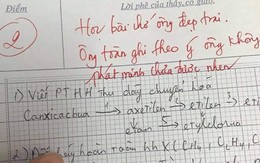 Điểm
Lời phê của thầy, cô giáo.
2
Học bài chớ ông đẹp trai.
Ông toàn ghi theo ý ông không
phát minh chưa được nhen
1) Viết PTHH theo dãy chuyển hoá
Canxicacbua → axetilen → etilen →
etan → etylclorua
2) hoàn toàn hh X (CH4, C2H4, C